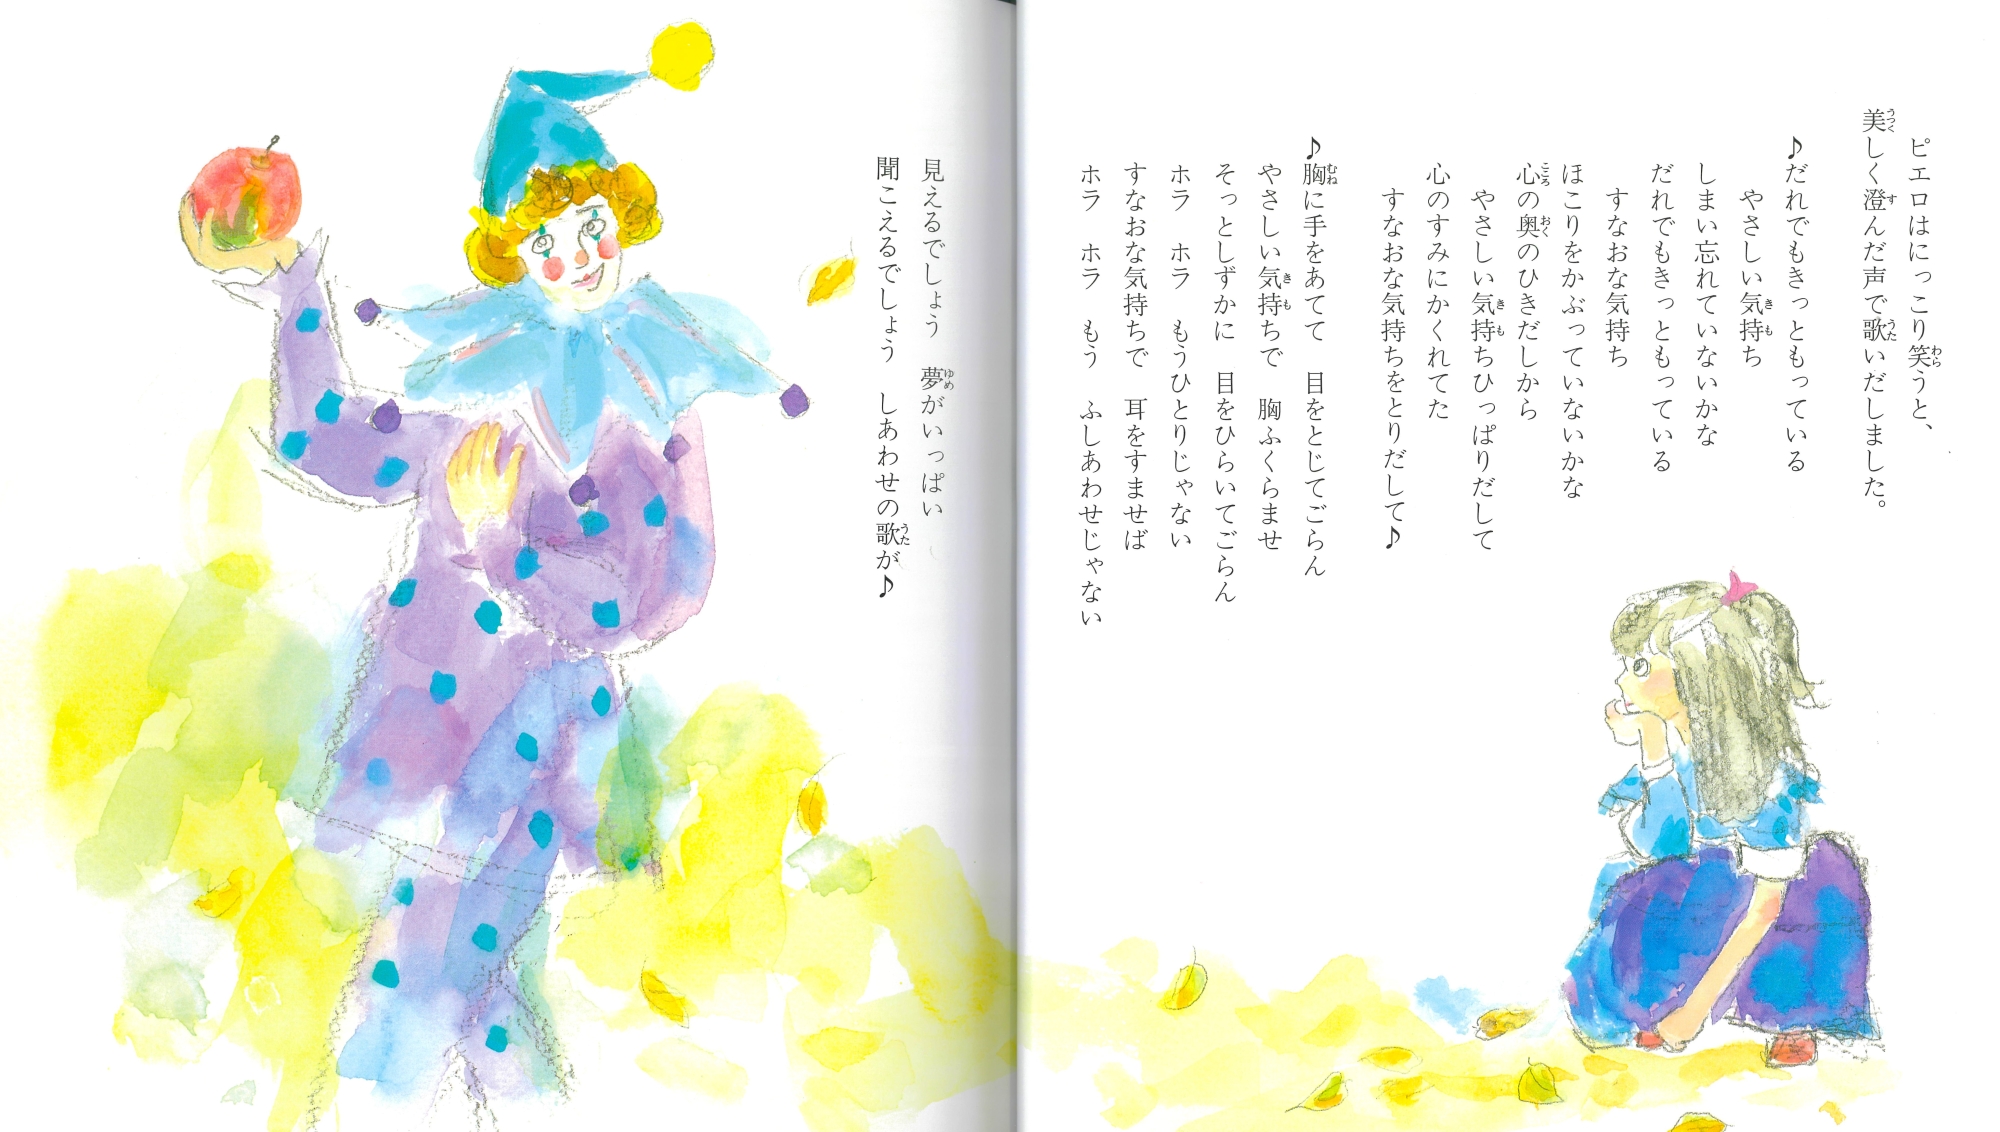 ピエロはにっこり笑うと、
美しく澄んだ声で歌いだしました。
♪だれでもきっともっている
やさしい気持ち
しまい忘れていないかな
だれでもきっともっている
すなおな気持ち
ほこりをかぶっていないかな
心の奥のひきだしから
やさしい気持ちひっぱりだして
心のすみにかくれてた
すなおな気持ちをとりだして♪
♪胸に手をあてて　目をとじてごらん
やさしい気持ちで　胸ふくらませ
そっとしずかに　目をひらいてごらん
ホラ　ホラ　もうひとりじゃない
すなおな気持ちで　耳をすませば
ホラ　ホラ　もう　ふしあわせじゃない
見えるでしょう　夢がいっぱい
聞こえるでしょう　しあわせの歌が♪